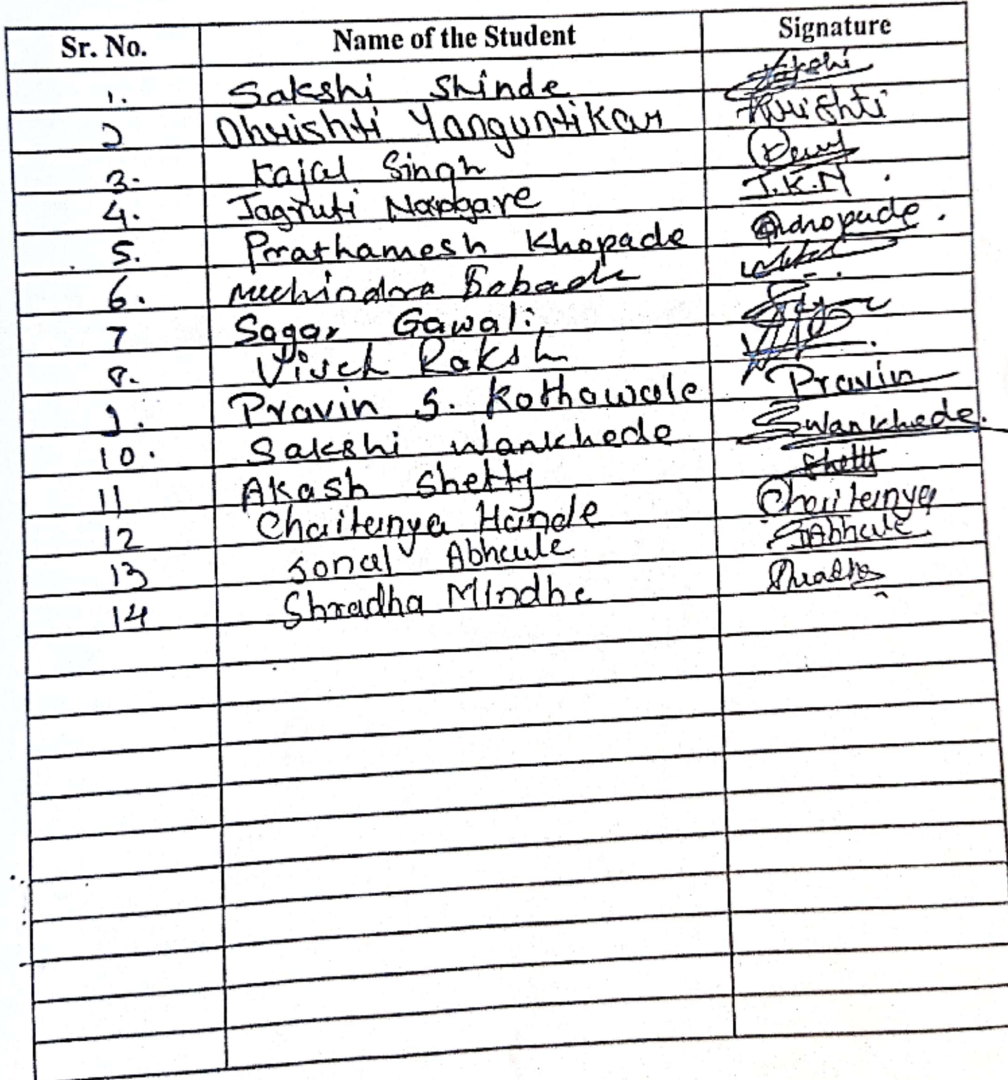 Sr. No. Name of the Student Signature
1. Sakshi Shinde Sakshi
2 Dhrishti Yanguntikar Drishti
3. Kajal Singh
4. Jagruti Nadgare J.K.N.
5. Prathamesh Khopade Khopade.
6. Machindra Babade
7 Sagar Gawali
8. Vivek Raksh
9. Pravin S. Kothawale Pravin
10. Sakshi Wankhede Swankhede.
11 Akash Shetty Shetty
12 Chaitanya Hande Chaitanya
13 Sonal Abhale SAbhale
14 Shradha Mindhe Shradha